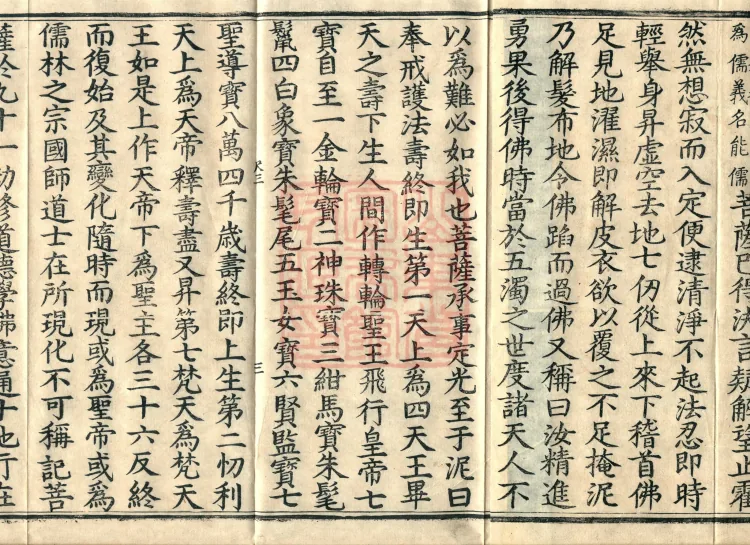 為儒義名能儒菩薩已得決言疑解望止霍
然無想寂而入定便逮清淨不起法忍即時
輕舉身昇虛空去地七仞從上來下稽首佛
足見地濯濕即解皮衣欲以覆之不足掩泥
乃解髮布地令佛蹈而過佛又稱曰汝精進
勇果後得佛時當於五濁之世度諸天人不
以爲難必如我也菩薩承事定光至于泥曰
奉戒護法壽終即生第一天上爲四天王畢
天之壽下生人間作轉輪聖王飛行皇帝七
寶自至一金輪寶二神珠寶三紺馬寶朱髦
鬣四白象寶朱髦尾五玉女寶六賢監寶七
三
聖導寶八萬四千歲壽終即上生第二忉利
天上爲天帝釋壽盡又昇第七梵天爲梵天
王如是上作天帝下爲聖主各三十六反終
而復始及其變化隨時而現或爲聖帝或爲
儒林之宗國師道士在所現化不可稱記菩
薩於九十一劫修道德學佛意通十地行在